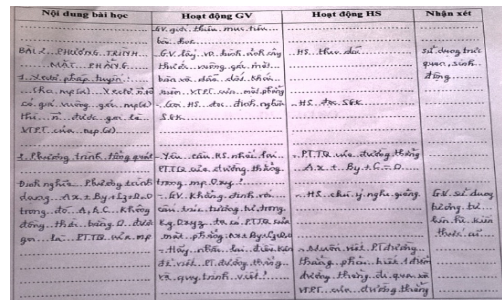 Nội dung bài học
Hoạt động GV
Hoạt động HS
Nhận xét
GV giới thiệu mục tiêu
bài học
BÀI 2. PHƯƠNG TRÌNH
MẶT PHẲNG
1. Vectơ pháp tuyến:
có giá vuông góc mp(α)
thì n được gọi là
VTPT của mp(α).
GV lấy
hình ảnh cây
thước vuông góc mặt
bàn và dẫn dắt khái
niệm VTPT của mặt phẳng
- Gọi HS đọc định nghĩa
SGK
- HS theo dõi
- HS đọc SGK
sử dụng trực
quan, sinh
động
2. Phương trình tổng quát
Định nghĩa: Phương trình
dạng Ax + By + Cz + D = 0
trong đó A, B, C không
đồng thời bằng 0 được
gọi là PTTQ của mp
- Yêu cầu HS nhắc lại
PTTQ của đường thẳng
trong mp Oxy!
- GV khẳng định rồi
tương tự trong
Kg Oxyz ta có PTTQ của
mặt phẳng Ax + By + Cz + D = 0
- Hãy nhắc lại điều kiện
để viết PT đường thẳng
và quy trình viết!
- PTTQ của đường thẳng
Ax + By + C = 0
- HS chú ý nghe giảng
- Muốn viết PT đường
thẳng phải biết 1 điểm
đường thẳng đi qua và
VTPT của đường thẳng
GV sử dụng
tương tự
kiến thức cũ